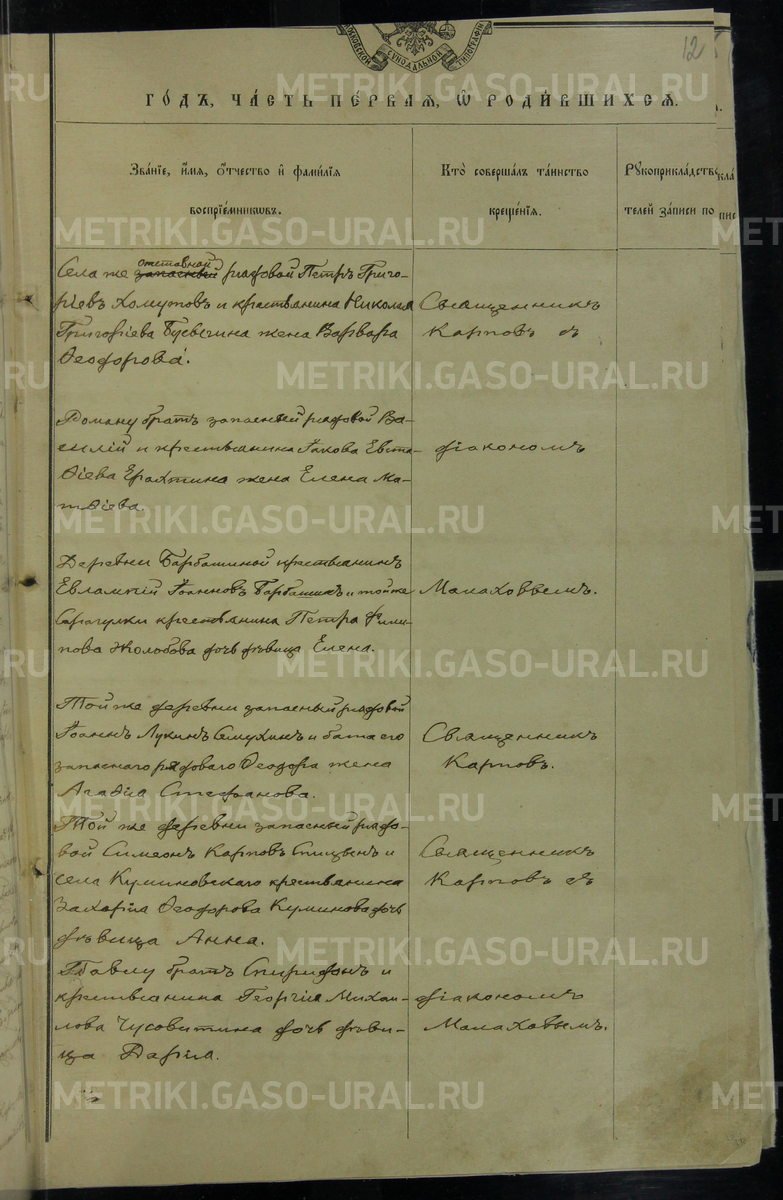 12
МОСКОВСКОЙ СѴНОДАЛЬНОЙ ТИПОГРАФІИ
ГО́ДЪ, ЧА́СТЬ ПЕ́РВАЯ, Ѽ РОДИ́ВШИХСЯ.
Зва́нїе, и҆́мя, ѻ҆́тчество и҆ фами́лїя
воспрїе́мникѡвъ.
Кто̀ соверша́лъ та́инство
креще́нїя.
Рꙋкоприкла́дство
телей за́писи по
Села же отставной запасный рядовой Петръ Григо-
ріевъ Хомутовъ и крестьянина Николая
Григоріева жена Варвара
Ѳеодорова.
Священникъ
Карповъ съ
Роману братъ запасный рядовой Ва-
силій и крестьянина Іакова Евста-
ѳіева Ерахтина жена Елена Ма-
тѳіева.
діакономъ
Деревни Барбашиной крестьянинъ
Евлампій Іоанновъ Барбашинъ и той же
Сарагулки крестьянина Петра Фили-
пова Жолобова дочь дѣвица Елена.
Малаховымъ.
Той же деревни запасный рядовой
Іоаннъ Лукинъ Семухинъ и брата его
запаснаго рядоваго Ѳеодора жена
Агафія Стефанова.
Священникъ
Карповъ.
Той же деревни запасный рядо-
вой Симеонъ Карповъ Спицынъ и
села Куминовскаго крестьянина
Захарія Ѳеодорова Куминова дочь
дѣвица Анна.
Священникъ
Карповъ съ
Павлу братъ Спиридонъ и
крестьянина Георгія Михаи-
лова Чусовитина дочь дѣви-
ца Дарія.
діакономъ
Малаховымъ.
METRIKI.GASO-URAL.RU